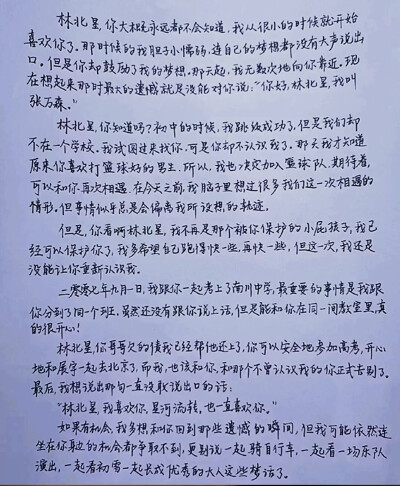 林北星,你大概永远都不会知道,我从很小的时候就开始
喜欢你了。那时候的我胆小懦弱,连自己的梦想都没有大声说出
口。但是你却鼓励了我的梦想。那天起,我无数次地向你靠近。现
在想起来那时最大的遗憾就是没能对你说:“你好,林北星,我叫
张万森。”
林北星,你知道吗?初中的时候,我跳级成功了,但是我们却
不在一个学校。我试图过来找你,可是你却不认识我了。那天我才知道
原来你喜欢打篮球好的男生。所以,我也决定加入篮球队,期待着,
可以和你再次相遇。在今天之前,我脑子里想过很多我们这一次相遇的
情形。但事情似乎总是会偏离我所设想的轨迹。
但是,你看啊林北星,我不再是那个被你保护的小屁孩了,我已
经可以保护你了,我多希望自己跑得快一些,再快一些,但这一次,我还是
没能让你重新认识我。
二零零七年九月一日,我跟你一起考上了南川中学,最重要的事情是我跟
你分到了同一个班,虽然还没有跟你说上话,但是能和你在同一间教室里,真
的很开心!
林北星,你哥哥欠的债我已经帮他还上了,你可以安全地参加高考,开心
地和展宇一起去北京了,而我,也该和你,和那个不曾认识我的你正式告别了。
最后,我想说出那句一直没敢说出口的话:
“林北星,我喜欢你,星河流转,也一直喜欢你。”
如果有机会,我多想和你回到那些遗憾的瞬间,但我可能依然连
坐在你身边的机会都争取不到,更别说一起骑自行车,一起看一场乐队
演出,一起看初雪一起长成优秀的大人这些梦话了。